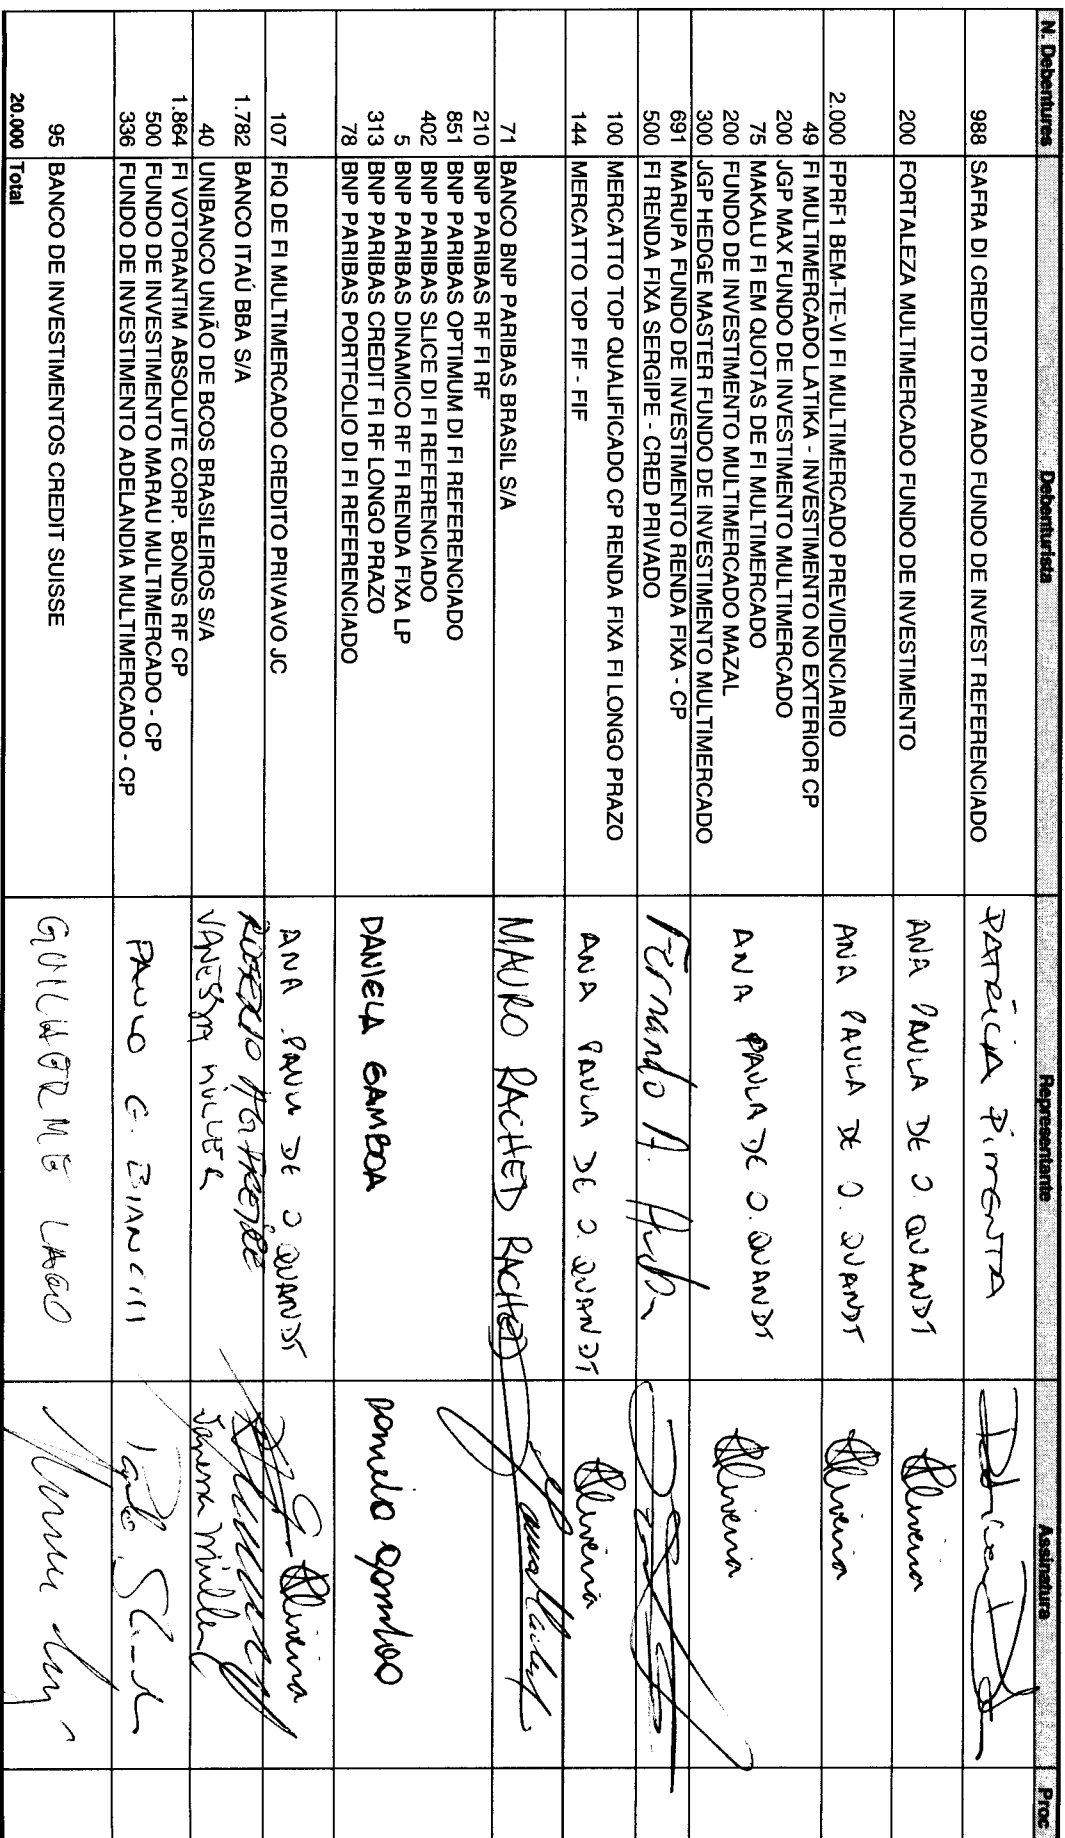 N. Debentures Debenturista Representante Assinatura Proc
988 SAFRA DI CREDITO PRIVADO FUNDO DE INVEST REFERENCIADO PATRÍCIA PIMENTA
200 FORTALEZA MULTIMERCADO FUNDO DE INVESTIMENTO ANA PAULA DE O. QUANDT Oliveira
2.000 FPRF1 BEM-TE-VI FI MULTIMERCADO PREVIDENCIARIO ANA PAULA DE O. QUANDT Oliveira
49 FI MULTIMERCADO LATIKA - INVESTIMENTO NO EXTERIOR CP
200 JGP MAX FUNDO DE INVESTIMENTO MULTIMERCADO
75 MAKALU FI EM QUOTAS DE FI MULTIMERCADO
200 FUNDO DE INVESTIMENTO MULTIMERCADO MAZAL
300 JGP HEDGE MASTER FUNDO DE INVESTIMENTO MULTIMERCADO
ANA PAULA DE O. QUANDT Oliveira
691 MARUPA FUNDO DE INVESTIMENTO RENDA FIXA - CP
500 FI RENDA FIXA SERGIPE - CRED PRIVADO
Fernando A.
100 MERCATTO TOP QUALIFICADO CP RENDA FIXA FI LONGO PRAZO
144 MERCATTO TOP FIF - FIF
ANA PAULA DE O. QUANDT Oliveira
71 BANCO BNP PARIBAS BRASIL S/A MAURO RACHED RACHED
210 BNP PARIBAS RF FI RF
851 BNP PARIBAS OPTIMUM DI FI REFERENCIADO
402 BNP PARIBAS SLICE DI FI REFERENCIADO
5 BNP PARIBAS DINAMICO RF FI RENDA FIXA LP
313 BNP PARIBAS CREDIT FI RF LONGO PRAZO
78 BNP PARIBAS PORTFOLIO DI FI REFERENCIADO
DANIELA GAMBOA Daniela Gamboa
107 FIQ DE FI MULTIMERCADO CREDITO PRIVAVO JC ANA PAULA DE O QUANDT Oliveira
1.782 BANCO ITAÚ BBA S/A
40 UNIBANCO UNIÃO DE BCOS BRASILEIROS S/A
VANESSA MULLER Vanessa Muller
1.864 FI VOTORANTIM ABSOLUTE CORP. BONDS RF CP
500 FUNDO DE INVESTIMENTO MARAU MULTIMERCADO - CP
336 FUNDO DE INVESTIMENTO ADELANDIA MULTIMERCADO - CP
PAULO G. BIANCHI
95 BANCO DE INVESTIMENTOS CREDIT SUISSE GUILHERME LAGO
20.000 Total